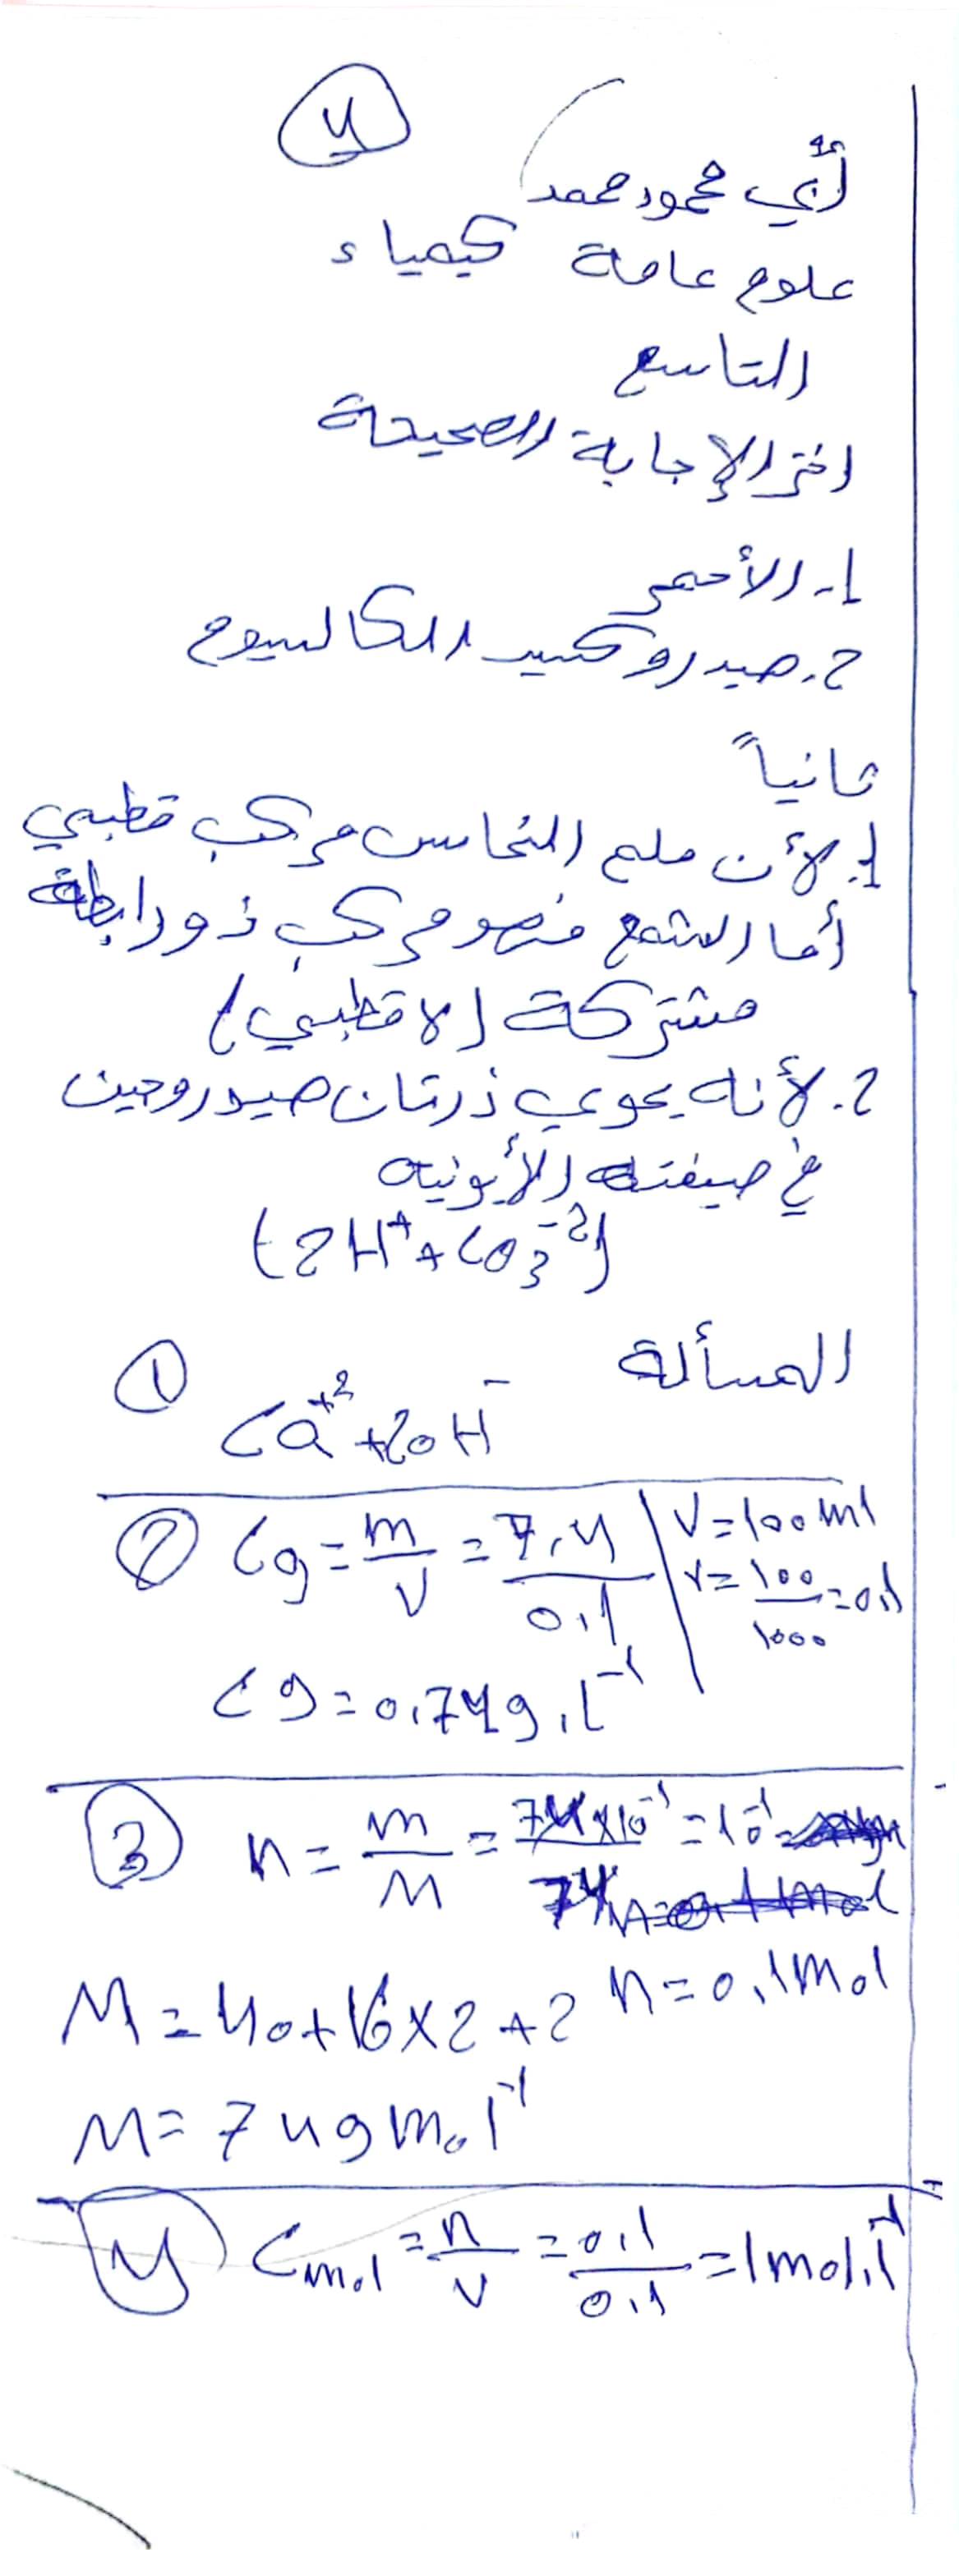 4
أُبي محمود محمد
علوم عامة كيمياء
التاسع
اختر الإجابة الصحيحة
1. الأحمر
2. هيدروكسيد الكالسيوم
ثانياً
1. لأن ملح النحاس مركب قطبي
أما الشمع فهو مركب ذو رابطة
مشتركة (لا قطبي)
2. لأنه يحوي ذرتان هيدروجين
في صيغته الأيونية
(2H⁺ + CO₃⁻²)
المسألة
① Ca⁺² + 2OH⁻
② Cg = m/V = 7,4/0,1
V = 100 ml
V = 100/1000 = 0,1
Cg = 0,74 g.l⁻¹
③ n = m/M = 74×10⁻¹/74 = 10⁻¹
n = 0,1 mol
M = 40 + 16×2 + 2
M = 74 g mol⁻¹
④ Cmol = n/V = 0,1/0,1 = 1 mol.l⁻¹